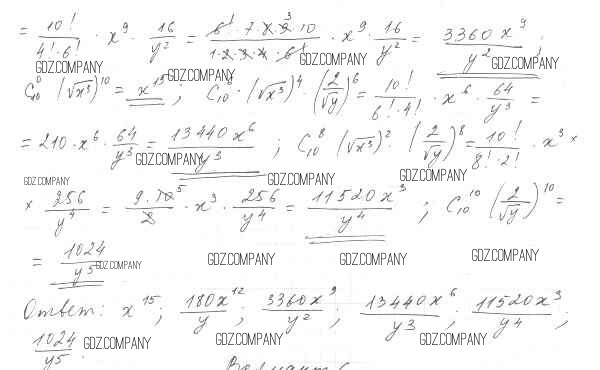 = 10!/(4!·6!) · x⁹ · 16/y² = 6!·7·8·9·10/(1·2·3·4·6!) · x⁹ · 16/y² = 3360x⁹/y² ;
GDZ.COMPANY GDZ.COMPANY GDZ.COMPANY
C₁₀⁰ (√x³)¹⁰ = x¹⁵ ; C₁₀⁶ · (√x³)⁴ · (2/√y)⁶ = 10!/(6!·4!) · x⁶ · 64/y³ =
= 210 · x⁶ · 64/y³ = 13440x⁶/y³ ; C₁₀⁸ (√x³)² · (2/√y)⁸ = 10!/(8!·2!) · x³ ×
GDZ.COMPANY
GDZ.COMPANY GDZ.COMPANY GDZ.COMPANY
× 256/y⁴ = 9·10/2 · x³ · 256/y⁴ = 11520x³/y⁴ ; C₁₀¹⁰ (2/√y)¹⁰ =
= 1024/y⁵
GDZ.COMPANY GDZ.COMPANY GDZ.COMPANY GDZ.COMPANY
Ответ: x¹⁵ ; 180x¹²/y ; 3360x⁹/y² ; 13440x⁶/y³ ; 11520x³/y⁴ ;
1024/y⁵.
GDZ.COMPANY GDZ.COMPANY GDZ.COMPANY